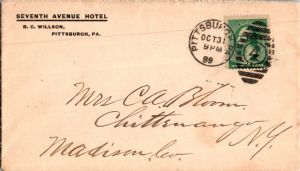 SEVENTH AVENUE HOTEL
B. C. WILLSON,
PITTSBURGH, PA.
PITTSBURGH
OCT 31
9 PM
89
Mrs C. A. Bloom
Chittenango
N.Y.
Madison Co.